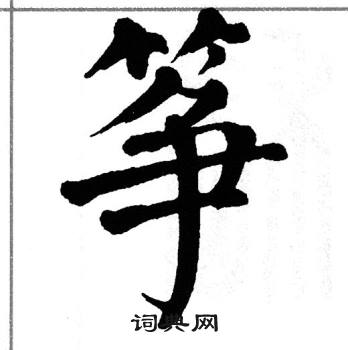 筝
词典网